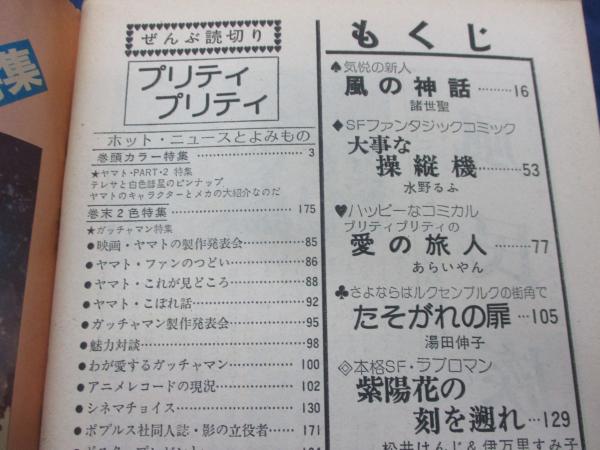 集
ぜんぶ読切り
プリティ
プリティ
ホット・ニュースとよみもの
巻頭カラー特集……………3
★ヤマト・PART・2 特集
テレサと白色彗星のピンナップ
ヤマトのキャラクターとメカの大紹介なのだ
巻末2色特集………………175
★ガッチャマン特集
●映画・ヤマトの製作発表会………85
●ヤマト・ファンのつどい…………86
●ヤマト・これが見どころ…………88
●ヤマト・こぼれ話…………………92
●ガッチャマン製作発表会…………95
●魅力対談……………………………98
●わが愛するガッチャマン…………100
●アニメレコードの現況……………102
●シネマチョイス……………………130
●ポプルス社同人誌・影の立役者……171
もくじ
♠気悦の新人
風の神話………16
諸世聖
◆SFファンタジックコミック
大事な
操縦機………53
水野るふ
♥ハッピーなコミカル
プリティプリティの
愛の旅人………77
あらいやん
♣さよならはルクセンブルクの街角で
たそがれの扉…105
湯田伸子
◈本格SF・ラブロマン
紫陽花の
刻を遡れ…129
松井けんじ&伊万里すみ子